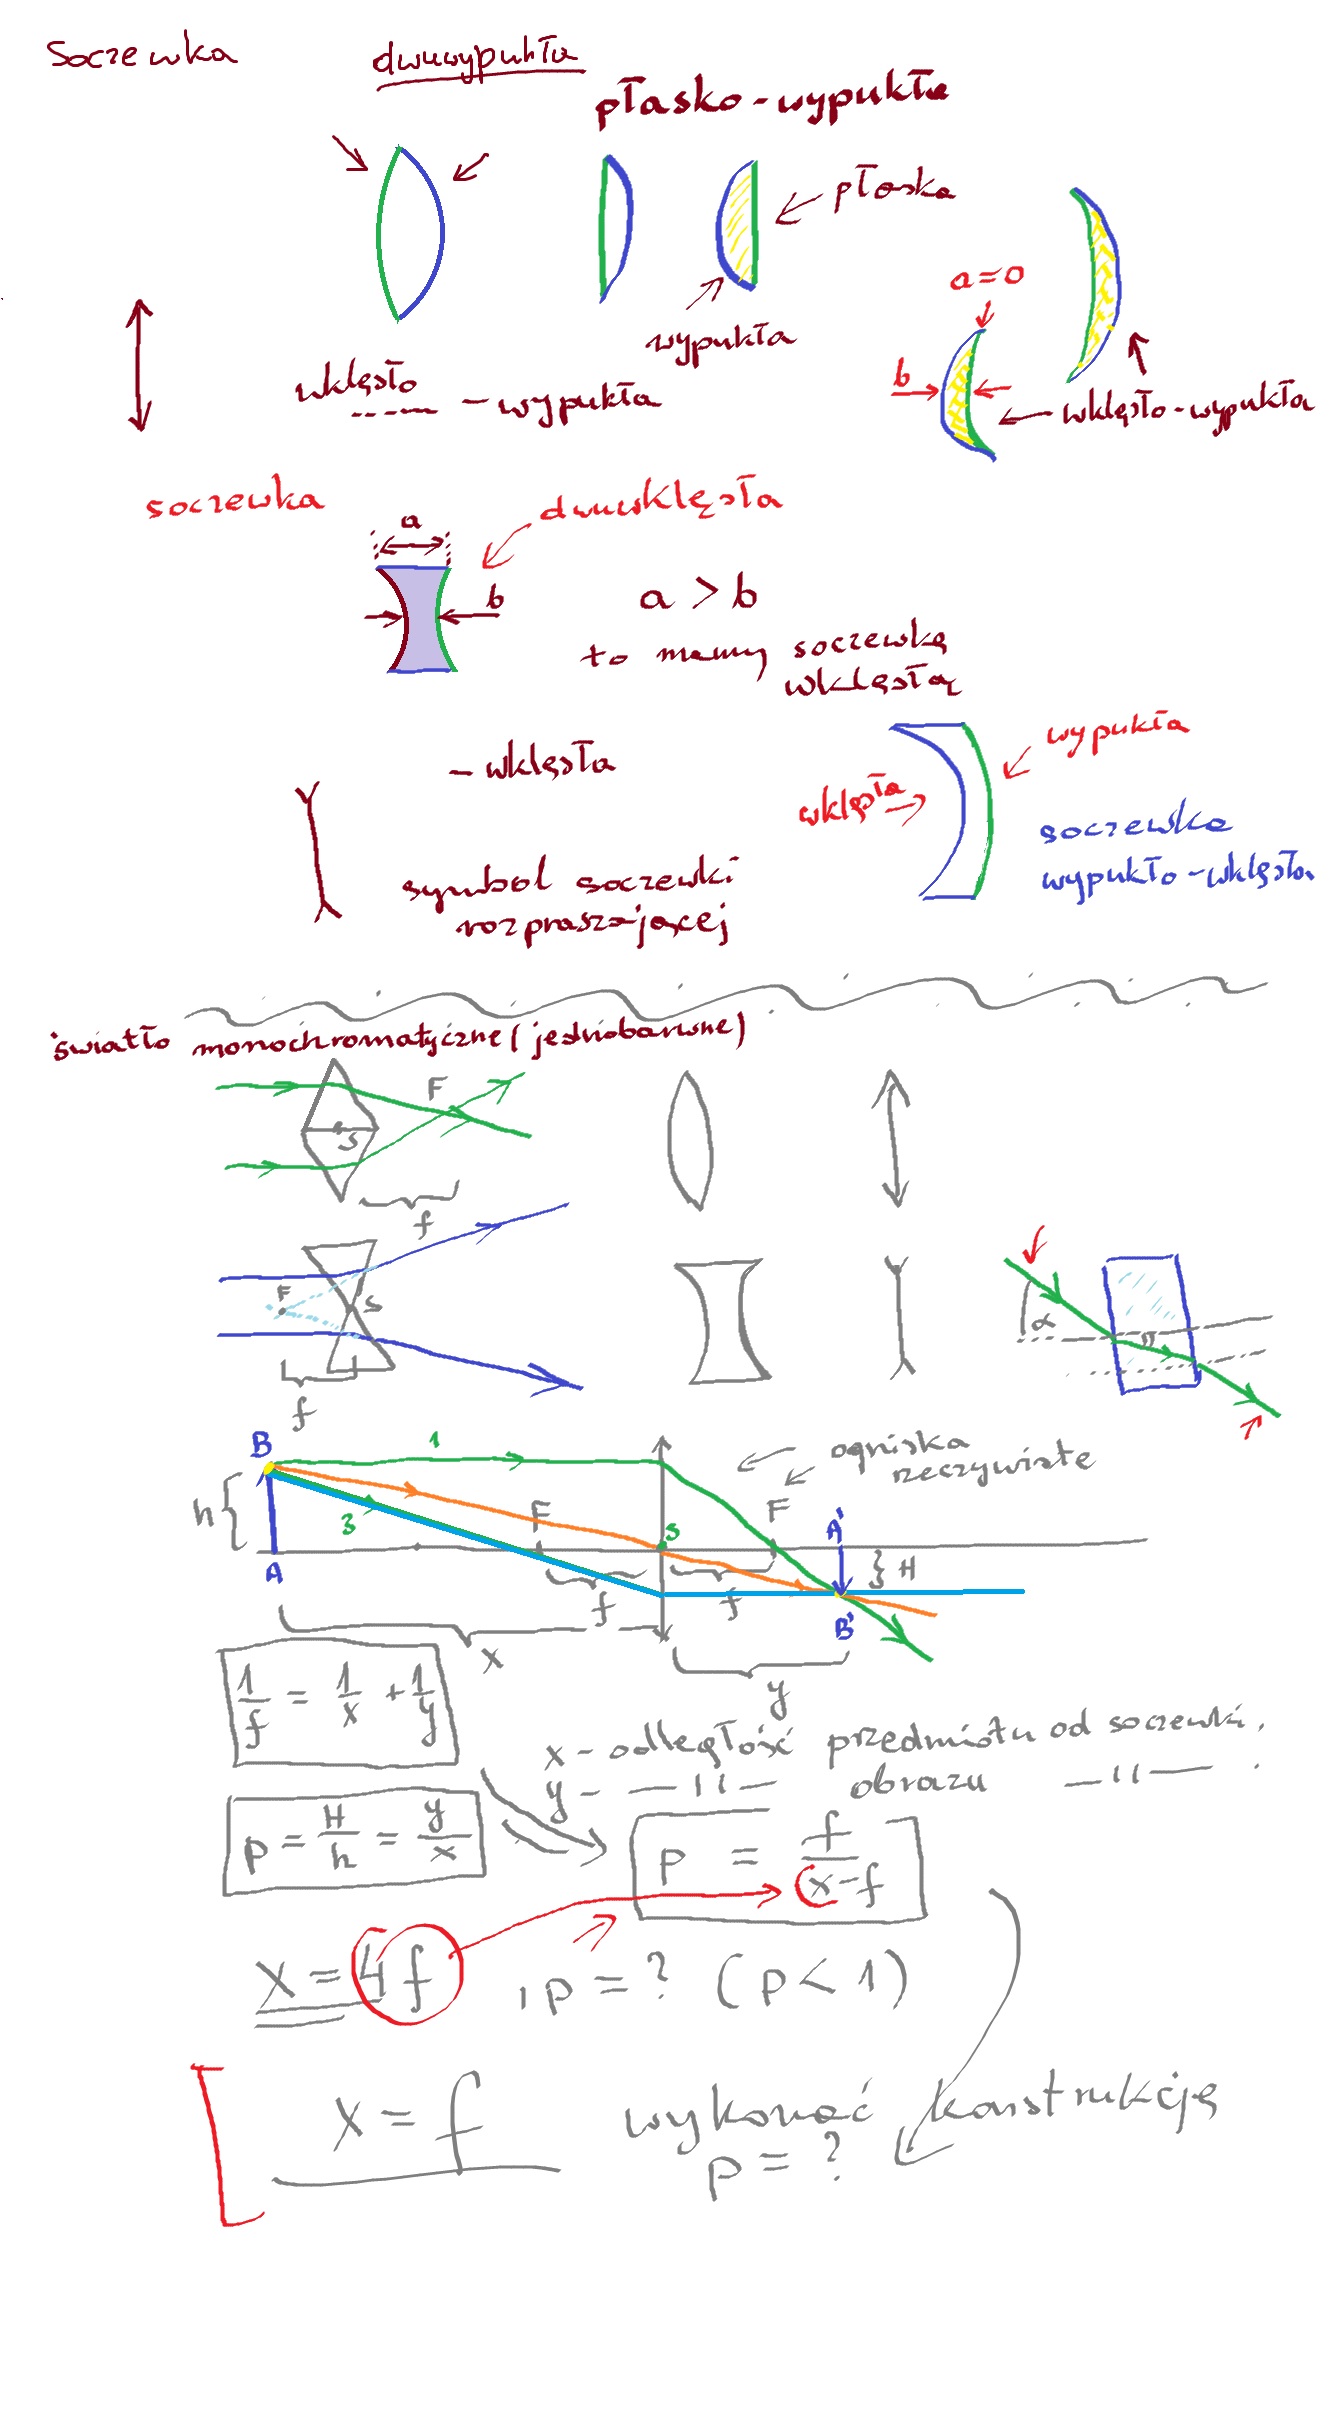 Soczewka
dwuwypukła
płasko-wypukłe
płaska
wypukła
a=0
b
wklęsło
-wypukła
wklęsło-wypukła
soczewka
dwuwklęsła
a
b
a > b
to mamy soczewkę
wklęsłą
-wklęsła
wypukła
wklęsła
soczewka
wypukło-wklęsła
symbol soczewki
rozpraszającej
światło monochromatyczne (jednobarwne)
F
S
f
F
S
f
α
B
1
ogniska
rzeczywiste
h
3
F
S
F
A'
H
A
f
f
B'
x
y
1/f = 1/x + 1/y
x - odległość przedmiotu od soczewki,
y - —11— obrazu —11— .
p = H/h = y/x
p = f/(x-f
x = 4f , p = ? (p < 1)
x = f wykonać konstrukcję
p = ?